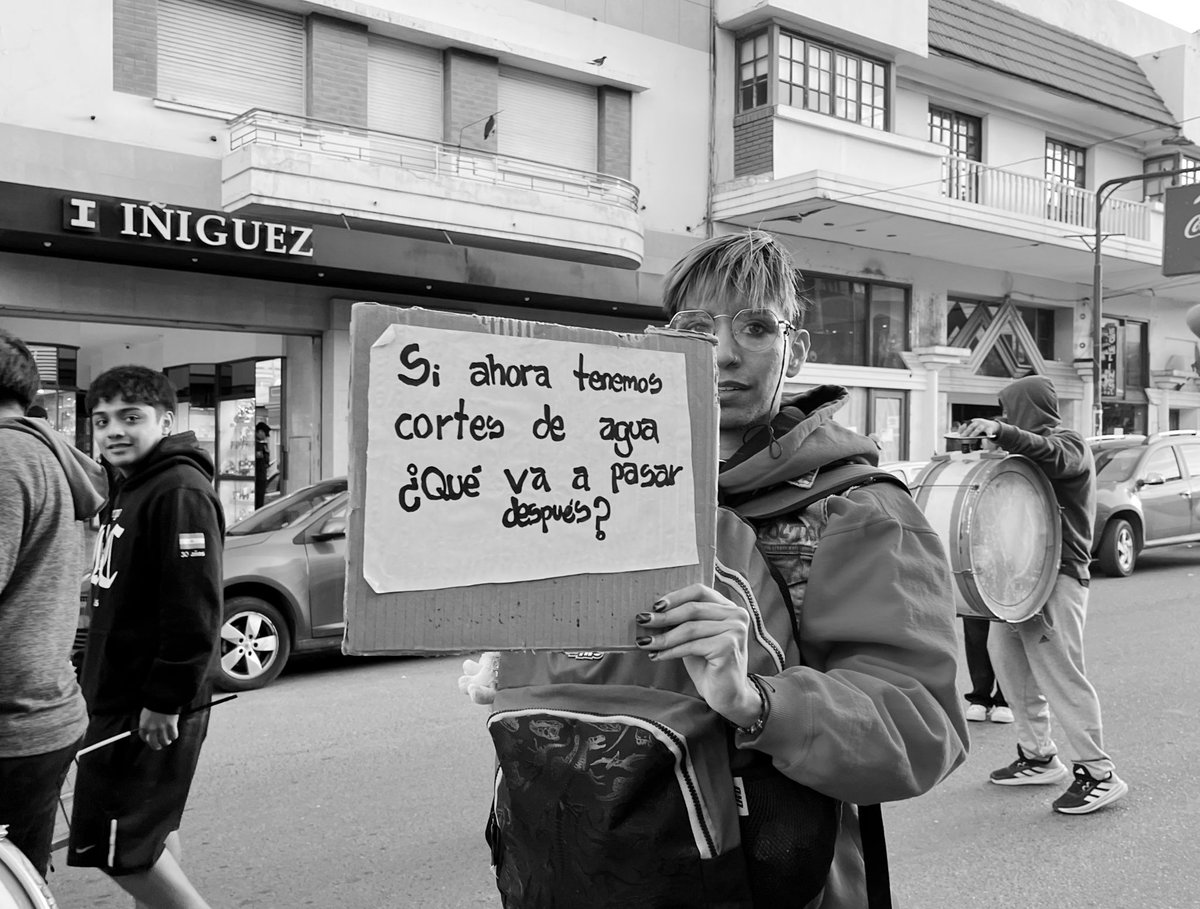 IÑIGUEZ
Si ahora tenemos
cortes de agua
¿Qué va a pasar
después?
30 años